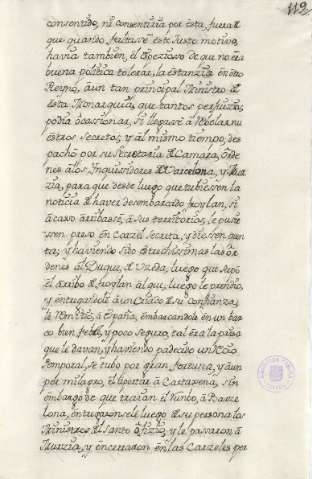 112
consentido, ni consentiria por esta, fuera de
que quando faltase este justo motivo,
havia tambien, el especioso de que no era
buena politica tolerar, la estanzia en otro
Reyno, á un tan principal Ministro de
esta Monarquia, que tantos perjuicios
podia ocassionar, si llegase á
nuestros secretos; y al mismo tiempo, des
pachó por su Secretaria de Camara, órde
nes á los Inquisidores de Barcelona, y Mur
zia, para que desde luego que tubiessen la
noticia de haver desembarcado Froylan, si
ácaso arribasse, á sus territorios, le pusie
ssen preso en Carzel secreta, y diessen quen
ta; y haviendo sido estrechissimas las ór
denes al Duque de Uzeda, luego que supo
el arribo de Froylan al que, luego le prendio,
y entregandole á un Criado de su confianza,
le remitió, á España, embarcandole en un bar
co bien febil, y poco seguro, tal era la prisa
que le davan, y haviendo padecido un recio
temporal, se tubo por gran fortuna, y aun
por milagro, el libertar á Cartaxena, sin
embargo de que traian el rumbo, á Barze
lona, entregaronsele luego de su persona los
Ministros del Santo ófizio, y le passaron á
Murzia, y encerraron en las Carzeles por